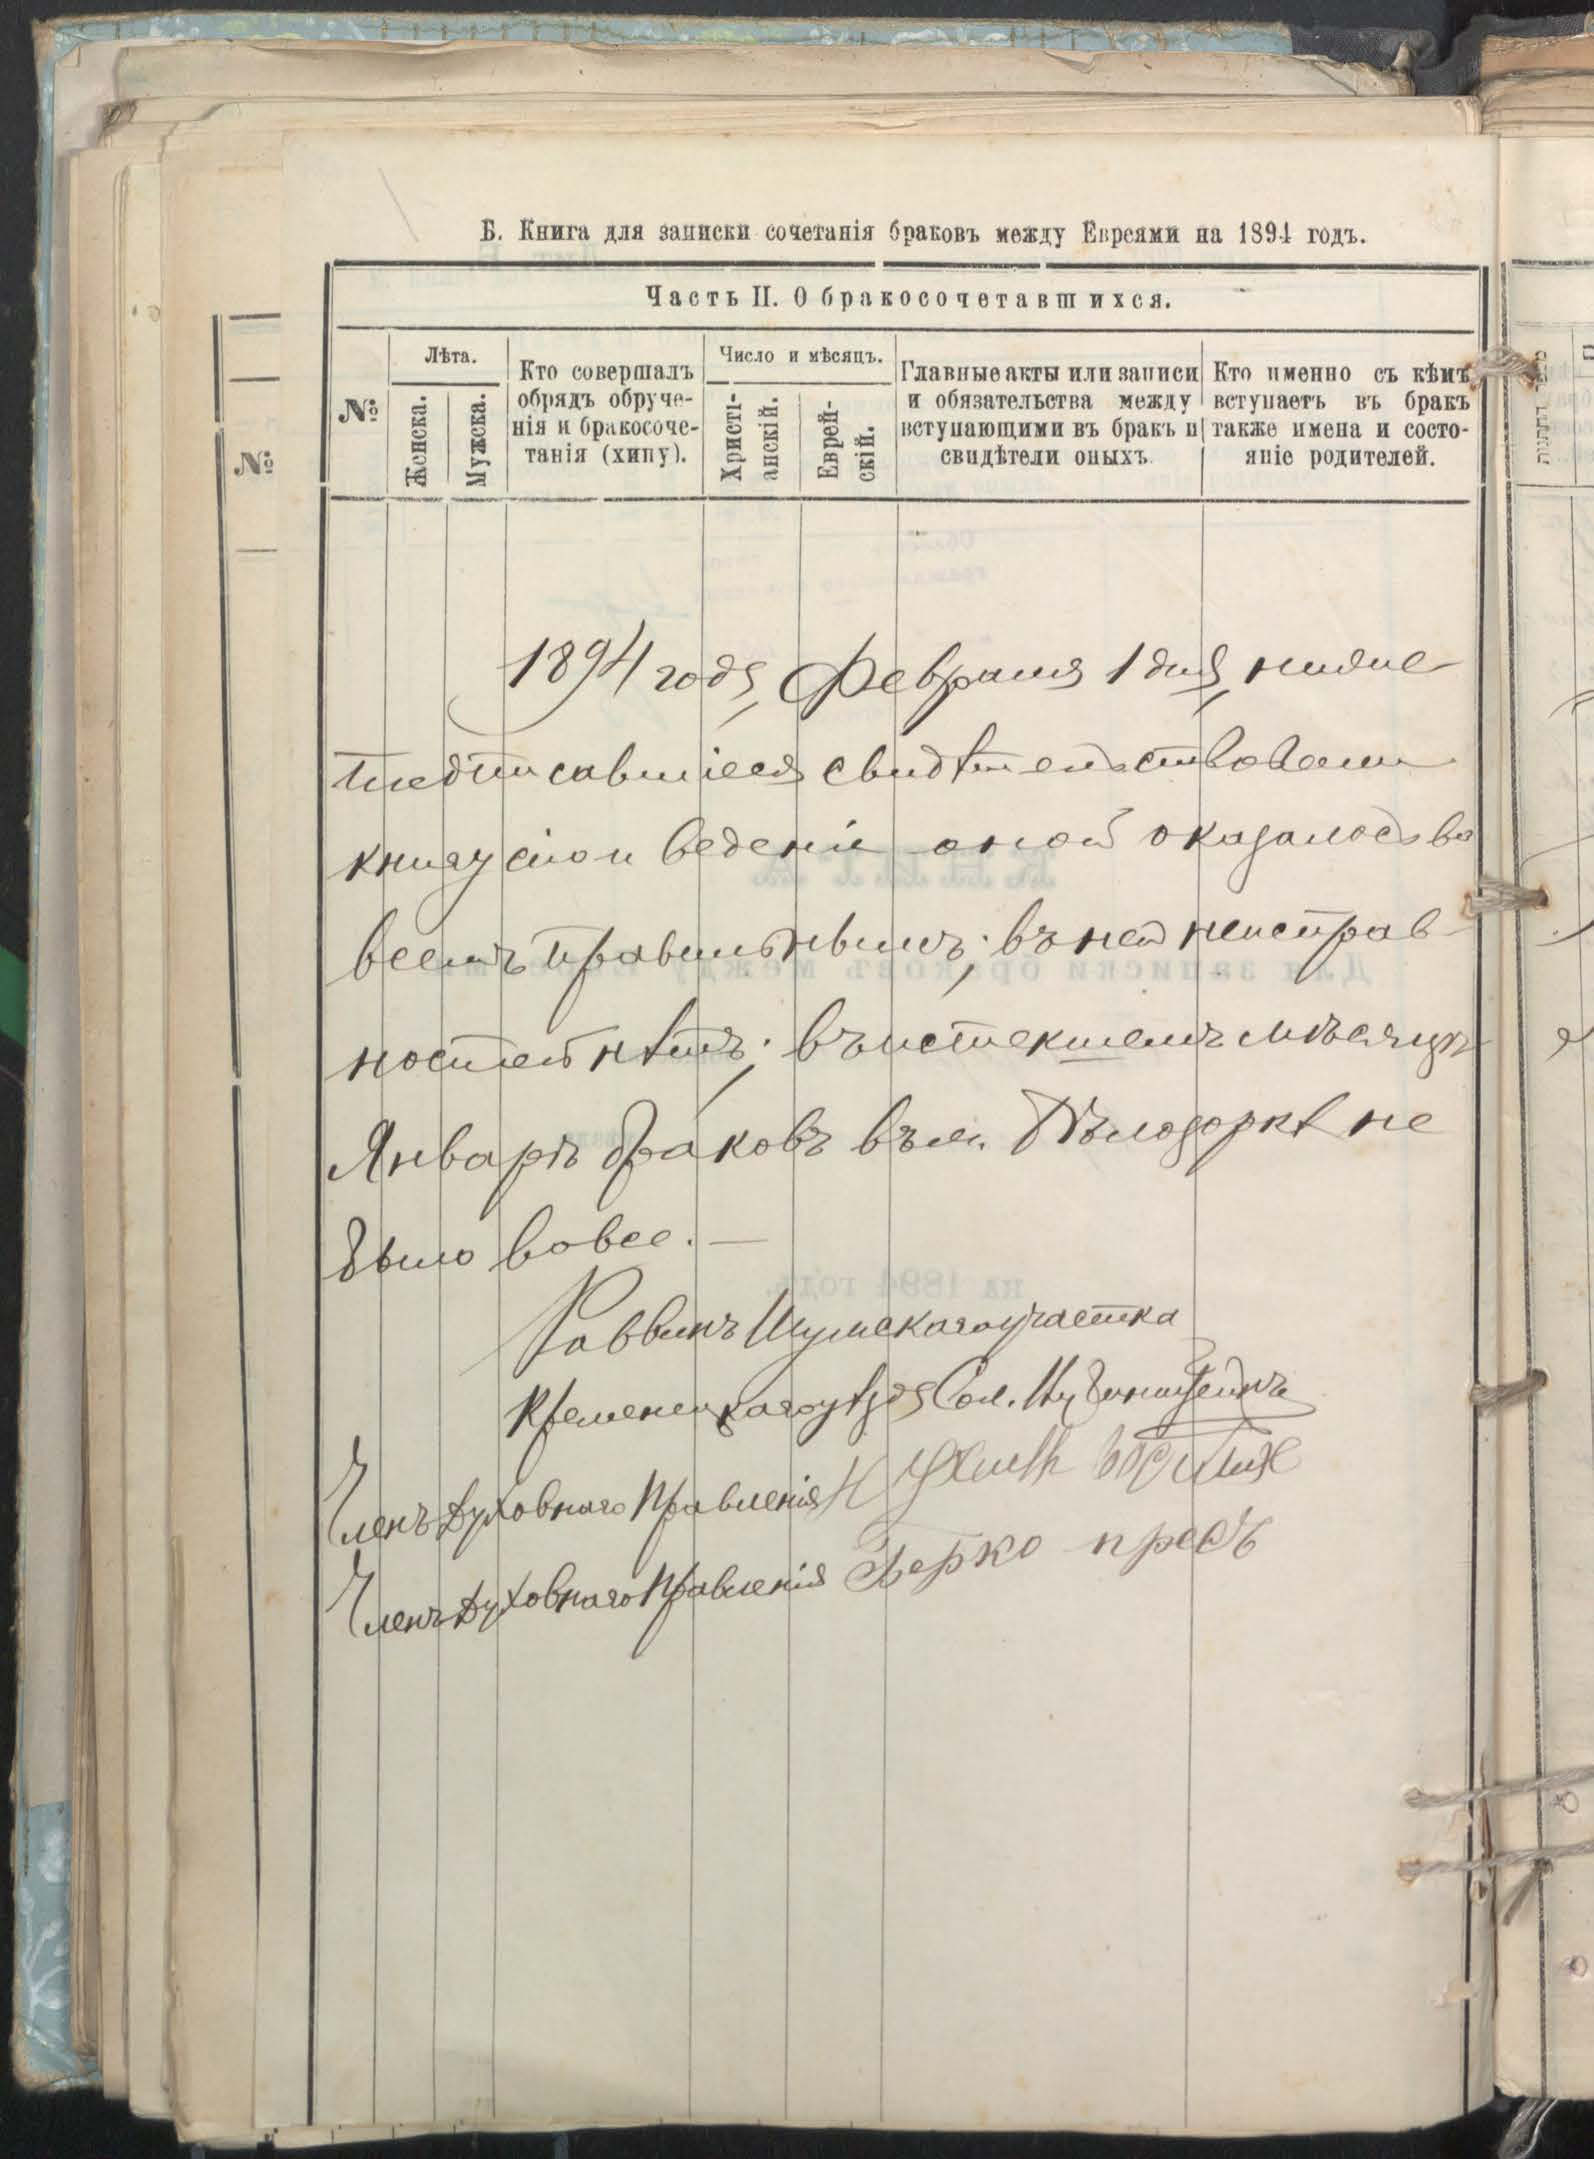 Б. Книга для записки сочетанія браковъ между Евреями на 1894 годъ.
Часть II. О бракосочетавшихся.
№
Лѣта.
Женска.
Мужска.
Кто совершалъ
обрядъ обруче-
нія и бракосоче-
танія (хипу).
Число и мѣсяцъ.
Христі-
анскій.
Еврей-
скій.
Главные акты или записи
и обязательства между
вступающими въ бракъ и
свидѣтели оныхъ.
Кто именно съ кѣмъ
вступаетъ въ бракъ
также имена и состо-
яніе родителей.
№
1894 года, Февраля 1 дня, ниже
подписавшіеся свидѣтельствовали
книгу сію и веденіе оной оказалось во
всемъ правильнымъ; въ ней неисправ-
ностей нѣтъ; въ истекшемъ мѣсяцѣ
Январѣ браковъ въ м. Бѣлозоркѣ не
было вовсе. —
Раввинъ Шумскаго участка
Кременецкаго уѣзда Сол.
Членъ Духовнаго Правленія
Членъ Духовнаго Правленія Берко